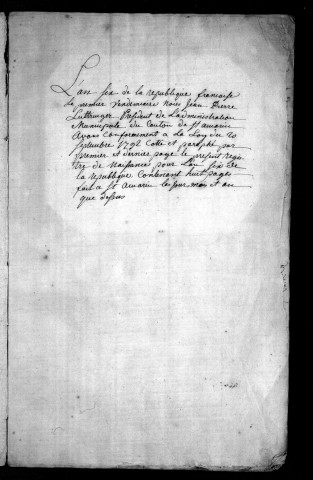 L'an six de la republique francaise
le premier vendemiaire nous Jean Pierre
Luttringer President de L'administration
Municipale du Canton de St amarin
avons Conformement a La Loy du 20
septembre 1792 Cotté et paraphé par
premier et dernier page le present regis
tre de naissances pour L'an six de
la republique Contenant huit pages
fait a St Amarin les jour mois et an
que dessus